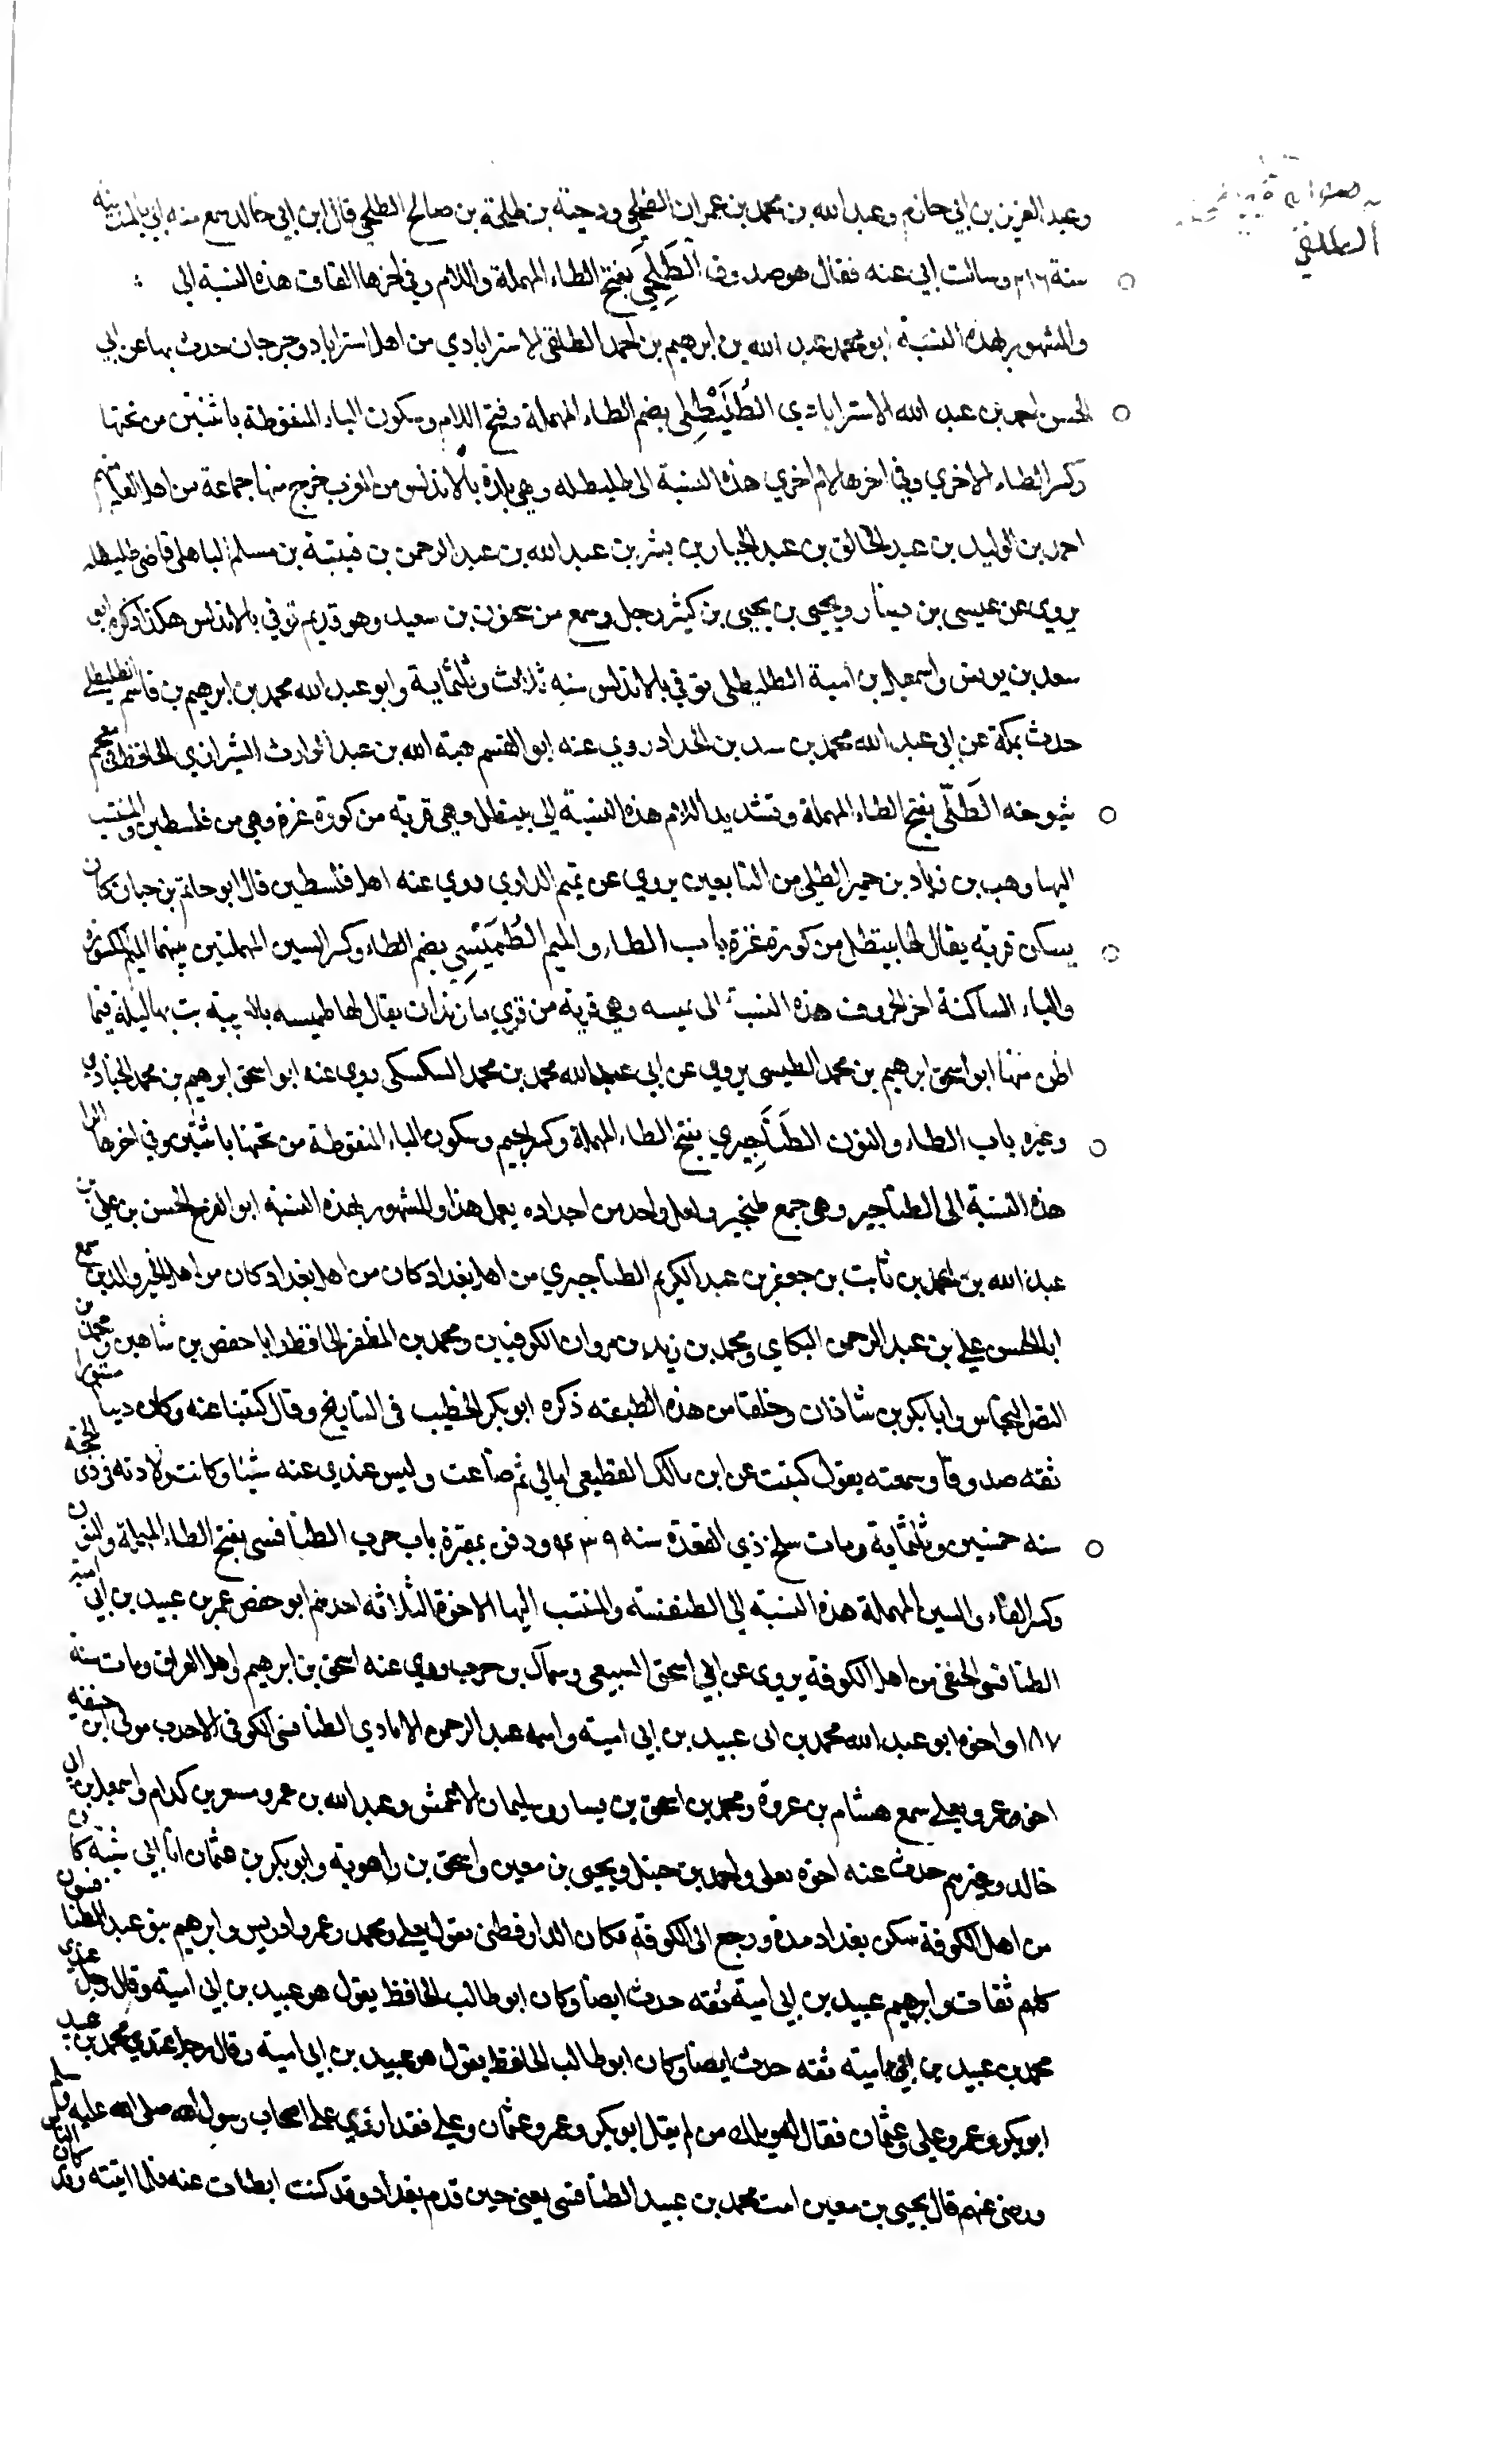 الطلقي
وعبد العزيز بن ابي حازم وعبد الله بن محمد بن عمران الطلحي ودحية بن طلحة بن صالح الطلحي قال ابن ابي خالد سمع منه ابي بالمدينة
سنة ٢١٦ وسالت ابي عنه فقال هو صدوق الطَلَحَي بفتح الطاء المهملة واللام وفي اخرها القاف هذه النسبة الى
والمشهور بهذه النسبة ابو محمد عبد الله بن ابرهيم بن احمد الطلقي الاسترابادي من اهل استراباد وجرجان حدث بها عن ابي
الحسن احمد بن عبد الله الاسترابادي الطُلَيْطِلي بضم الطاء المهملة وفتح اللام وسكون الياء المنقوطة باثنتين من تحتها
وكسر الطاء الاخري وفي اخرها لام اخري هذه النسبة الى طليطله وهي بلدة بالاندلس من المغرب خرج منها جماعة من اهل العلم منهم
احمد بن الوليد بن عبد الخالق بن عبد الجبار بن بشر بن عبد الله بن عبد الرحمن بن قتيبة بن مسلم الباهلي قاضي طليطله
يروي عن عيسى بن دينار ويحيى بن يحيى بن كثير رجل وسمع من سحنون بن سعيد وهو قديم توفي بالاندلس هكذا ذكره ابو
سعد بن يونس واسمعيل بن امية الطليطلي توفي بالاندلس سنة ثلاث وثلثماية وابو عبد الله محمد بن ابرهيم بن قاسم الطليطلي
حدث بمكة عن ابي عبد الله محمد بن بن الحداد روي عنه ابو القسم هبة الله بن عبد الوارث الشيرازي الحافظ في معجم
شيوخه الطَلّي بفتح الطاء المهملة وتشديد اللام هذه النسبة الى بيتطل وهي قرية من كورة غزة وهي من فلسطين والمنتسب
اليها وهب بن زياد بن حمير الطلي من التابعين يروي عن تميم الداري روي عنه اهل فلسطين قال ابو حاتم بن حبان كان
يسكن قرية يقال لها بيتطل من كورة غزة باب الطاء والميم الطُمَيْسِي بضم الطاء وكسر السين المهملتين بينهما الميم المكسورة
والياء الساكنة اخر الحروف هذه النسبة الى وهي قرية من قري مازندران يقال لها طميسه بت بها ليلة فيما
اظن منها ابو اسحق ابرهيم بن محمد الطميسي يروي عن ابي عبد الله محمد بن محمد السكسكي روي عنه ابو اسحق ابرهيم بن محمد
وغيره باب الطاء والنون الطَنَاجِيري بفتح الطاء المهملة وكسر الجيم وسكون الياء المنقوطة من تحتها باثنتين وفي اخرها الرا
هذه النسبة الى الطناجير وهي جمع طنجير ولعل واحد من اجداده يعمل هذا والمشهور بهذه النسبة ابو الفرج الحسن بن علي بن
عبد الله بن احمد بن ثابت بن جعفر بن عبد الكريم الطناجيري من اهل بغداد كان من اهل بغداد كان من اهل الخير والدين سمع
ابا الحسن علي بن عبد الرحمن البكاي ومحمد بن زيد بن مروان الكوفيين ومحمد بن المظفر الحافظ وابا حفص بن شاهين ومحمد بن
النضر النحاس وابا بكر بن شاذان وخلقا من هذه الطبقه ذكره ابو بكر الخطيب في التاريخ وقال كتبنا عنه وكان دينا مستورا
ثقه صدوقا وسمعته يقول كتبت عن ابن مالك القطيعي امالي ثم ضاعت وليس عندي عنه شيئا وكانت ولادته في ذي الحجة
سنه خمسين وثلثماية ومات سلخ ذي القعدة سنه ٤٣٩ ودفن بمقبرة باب حرب الطنافسي بفتح الطاء المهملة والنون
وكسر الفاء والسين المهملة هذه النسبة الى الطنفسه والمنتسب اليها الاخوة الثلاثه احدهم ابو حفص عمر بن عبيد بن ابي امية
الطنافسي الحنفي من اهل الكوفة يروي عن ابي اسحق السبيعي وسماك بن حرب روي عنه اسحق بن ابرهيم واهل العراق ومات سنة
١٨٧ واخوه ابو عبد الله محمد بن ابى عبيد بن ابي امية واسمه عبد الرحمن الايادي الطنافسي الكوفي الاحدب مولى ابن حنيفة
اخو عمر ويعلي سمع هشام بن عروة ومحمد بن اسحق بن يسار وسليمان الاعمش وعبد الله بن عمر ومسعر بن كدام واسمعيل بن ابي
خالد وغيرهم حدث عنه اخوه يعلي واحمد بن حنبل ويحيى بن معين واسحق بن راهوية وابو بكر بن عثمان ابنا ابي شيبه كان
من اهل الكوفة سكن بغداد مدة ورجع الى الكوفة فكان الدارقطني يقول يعلي ومحمد وعمر وادريس وابرهيم بنو عبيد الطنافسيون
كلهم ثقات وابرهيم عبيد بن ابي امية ثقه حدث ايضا وكان ابو طالب الحافظ يقول هو عبيد بن ابي امية وقال رجل عندي
محمد بن عبيد بن ابي امية ثقه حدث ايضا وكان ابو طالب الحافظ يقول هو عبيد بن ابي امية وقال رجل عندي محمد بن عبيد
ابو بكر وعمر وعلي وعثمان فقال له ويلك من لم يقل ابو بكر وعمر وعثمان وعلي فقد ازري على اصحاب رسول الله صلى الله عليه وسلم
ورضي عنهم قال يحيى بن معين اتيت محمد بن عبيد الطنافسي يعني حين قدم بغداد وقد كنت ابطات عنه فلما اتيته وقد كان